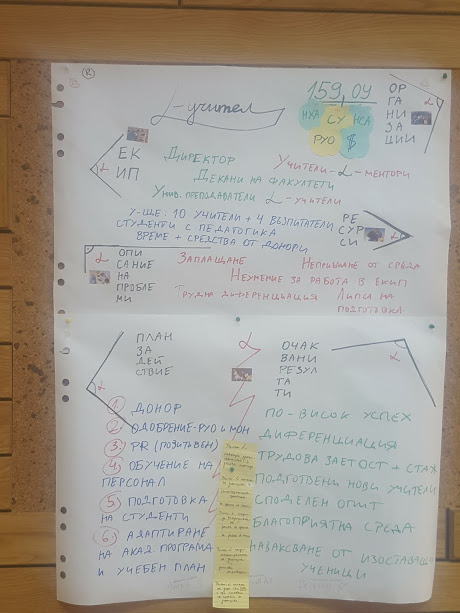 R
159,09
ОР
ГА
НИ
ЗА
ЦИИ
L
L-учител
НХА СУ НСА
РУО $
ЕК
ИП
L
ДИРЕКТОР
УЧИТЕЛИ-L-МЕНТОРИ
ДЕКАНИ НА ФАКУЛТЕТИ
УНИВ. ПРЕПОДАВАТЕЛИ L-УЧИТЕЛИ
У-ЩЕ: 10 УЧИТЕЛИ + 4 ВЪЗПИТАТЕЛИ
СТУДЕНТИ С ПЕДАГОГИКА
ВРЕМЕ + СРЕДСТВА ОТ ДОНОРИ
РЕ
СУР
СИ
L
L
ОПИ
САНИЕ
НА
ПРОБЛЕ
МИ
ЗАПЛАЩАНЕ
НЕПРИЕМАНЕ ОТ СРЕДА
НЕУМЕНИЕ ЗА РАБОТА В ЕКИП
ТРУДНА ДИФЕРЕНЦИАЦИЯ
ЛИПСА НА
ПОДГОТОВКА
ПЛАН
ЗА
ДЕЙ
СТВИЕ
L
1. ДОНОР
2. ОДОБРЕНИЕ-РУО И МОН
3. PR (ПОЗИТИВЕН)
4. ОБУЧЕНИЕ НА
ПЕРСОНАЛ
5. ПОДГОТОВКА
НА СТУДЕНТИ
6. АДАПТИРАНЕ
НА АКАД. ПРОГРАМА
И УЧЕБЕН ПЛАН
L
ОЧАК
ВАНИ
РЕЗУЛ
ТА
ТИ
L
ПО-ВИСОК УСПЕХ
ДИФЕРЕНЦИАЦИЯ
ТРУДОВА ЗАЕТОСТ + СТАЖ
ПОДГОТВЕНИ НОВИ УЧИТЕЛИ
СПОДЕЛЕН ОПИТ
БЛАГОПРИЯТНА СРЕДА
НАВАКСВАНЕ ОТ ИЗОСТАВАЩИ
УЧЕНИЦИ